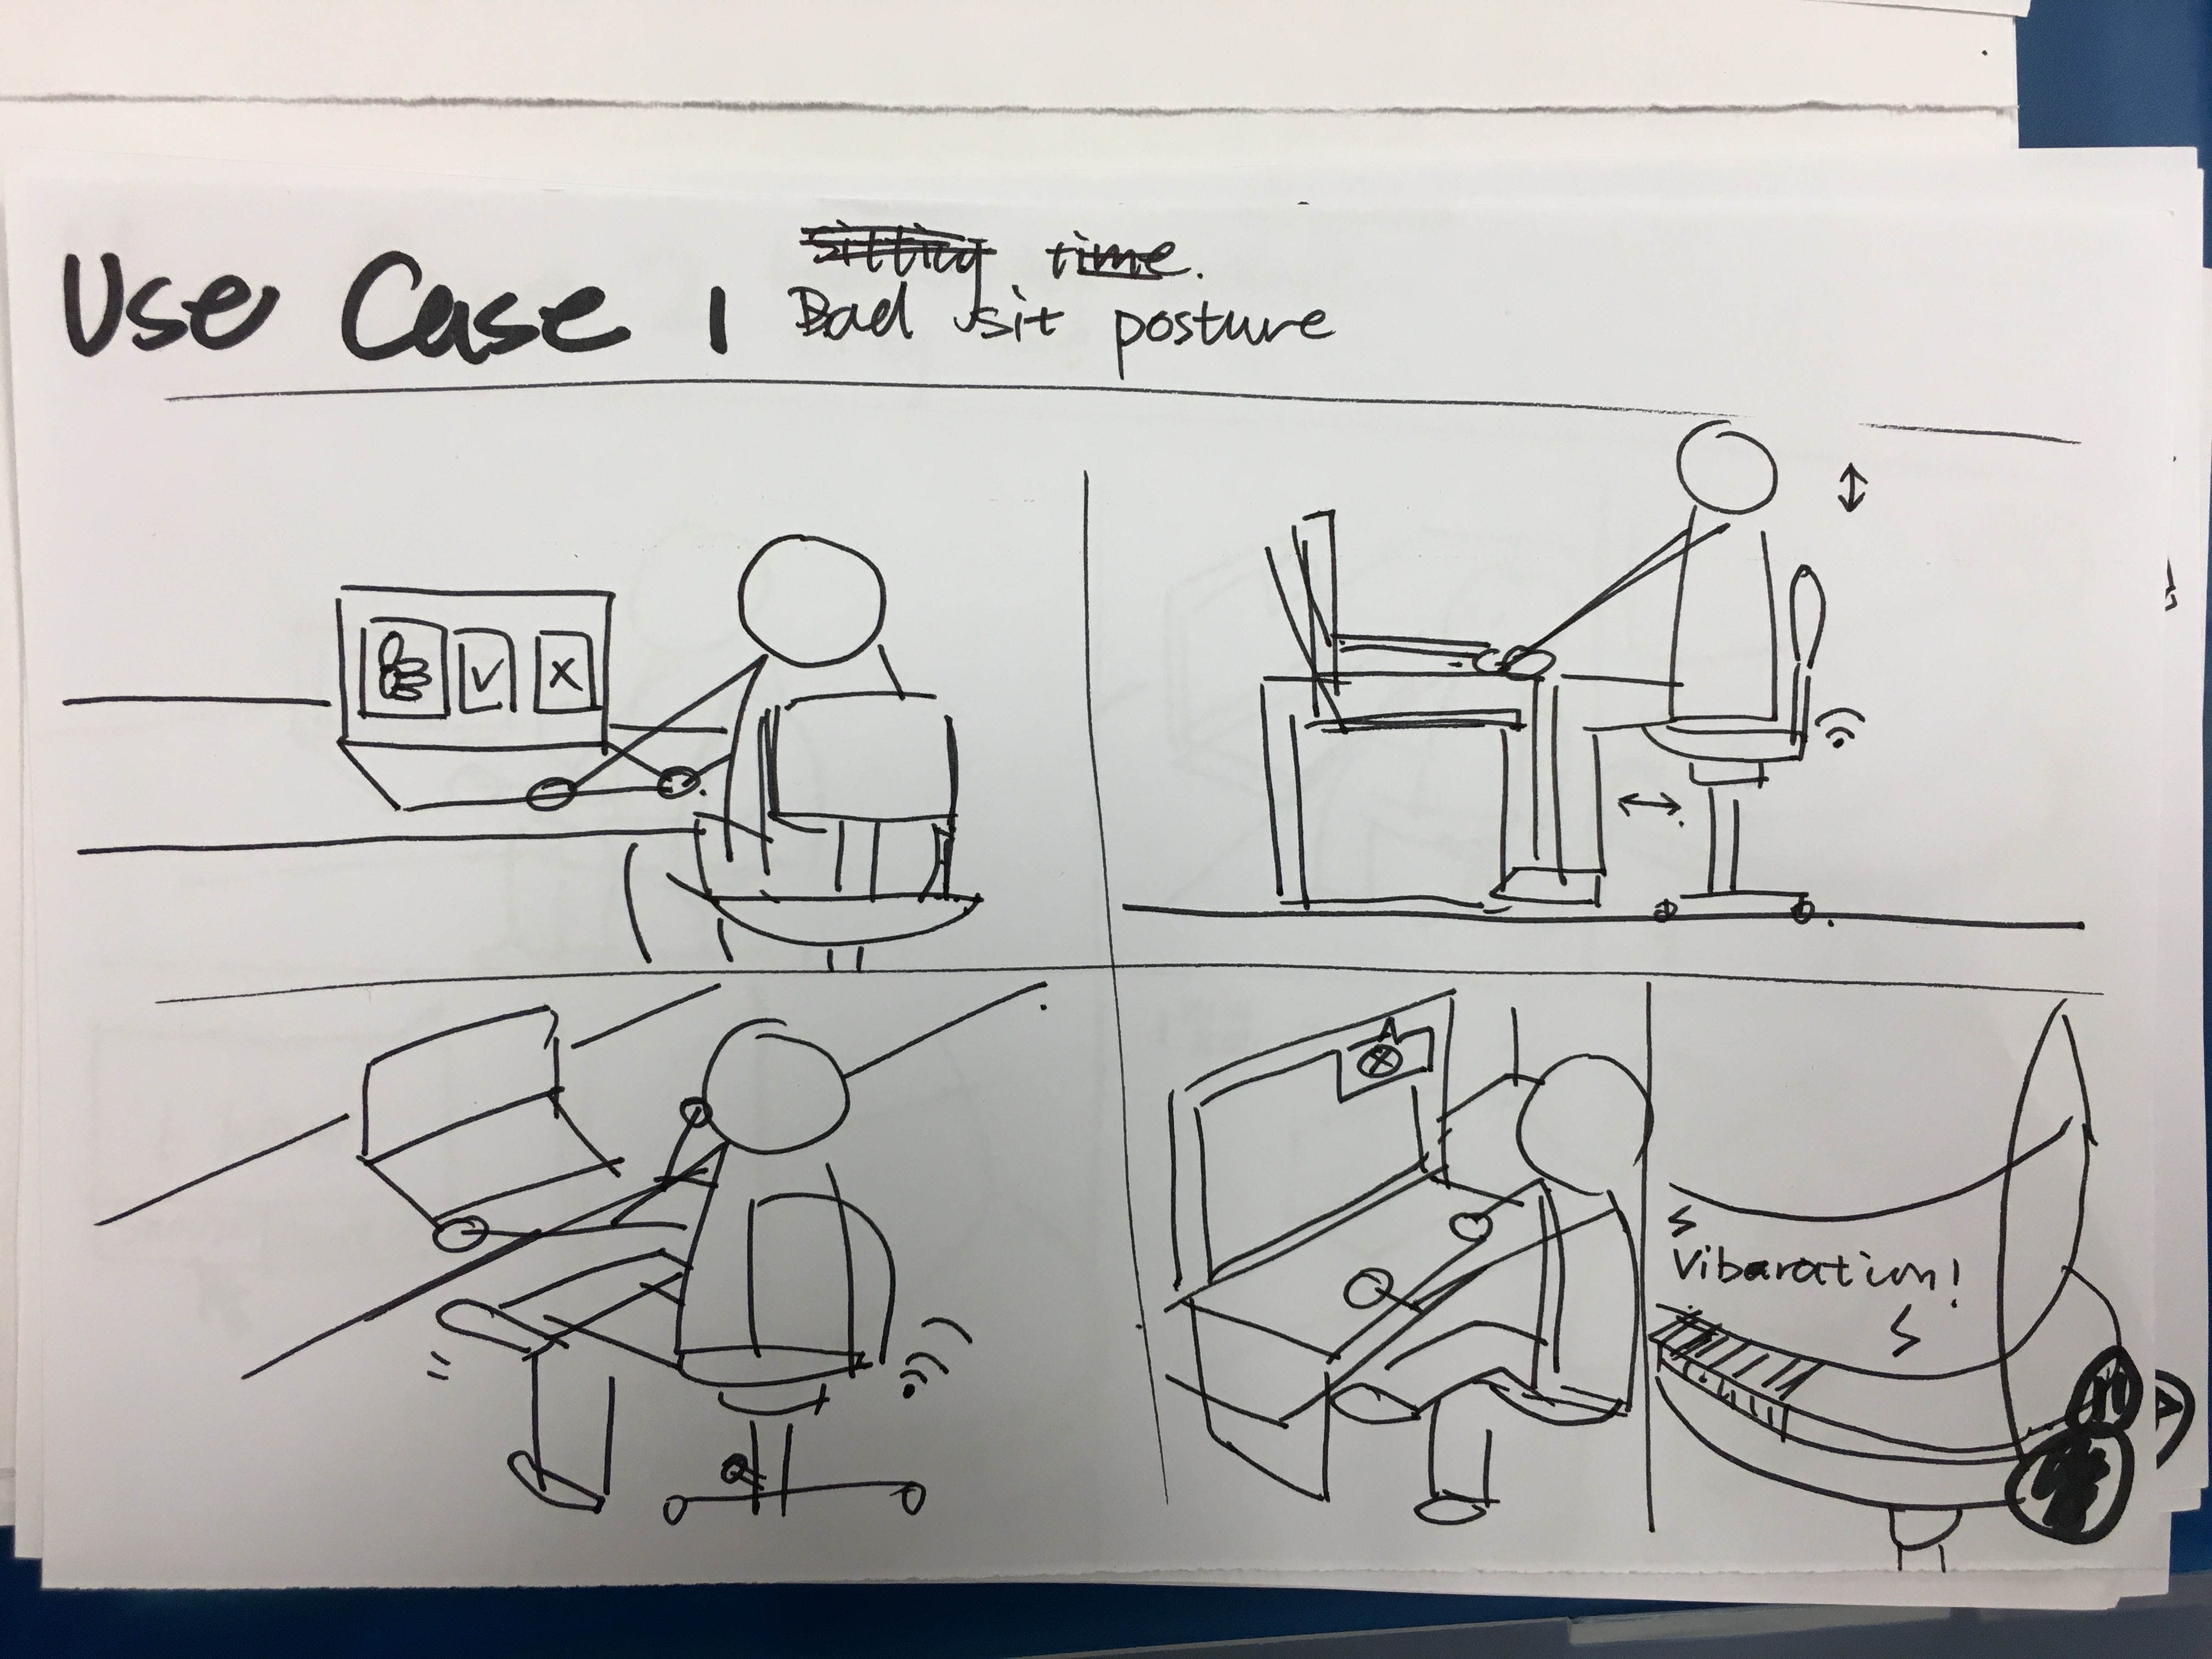 Use Case 1
sitting time.
Bad sit posture
V X
Vibaration!